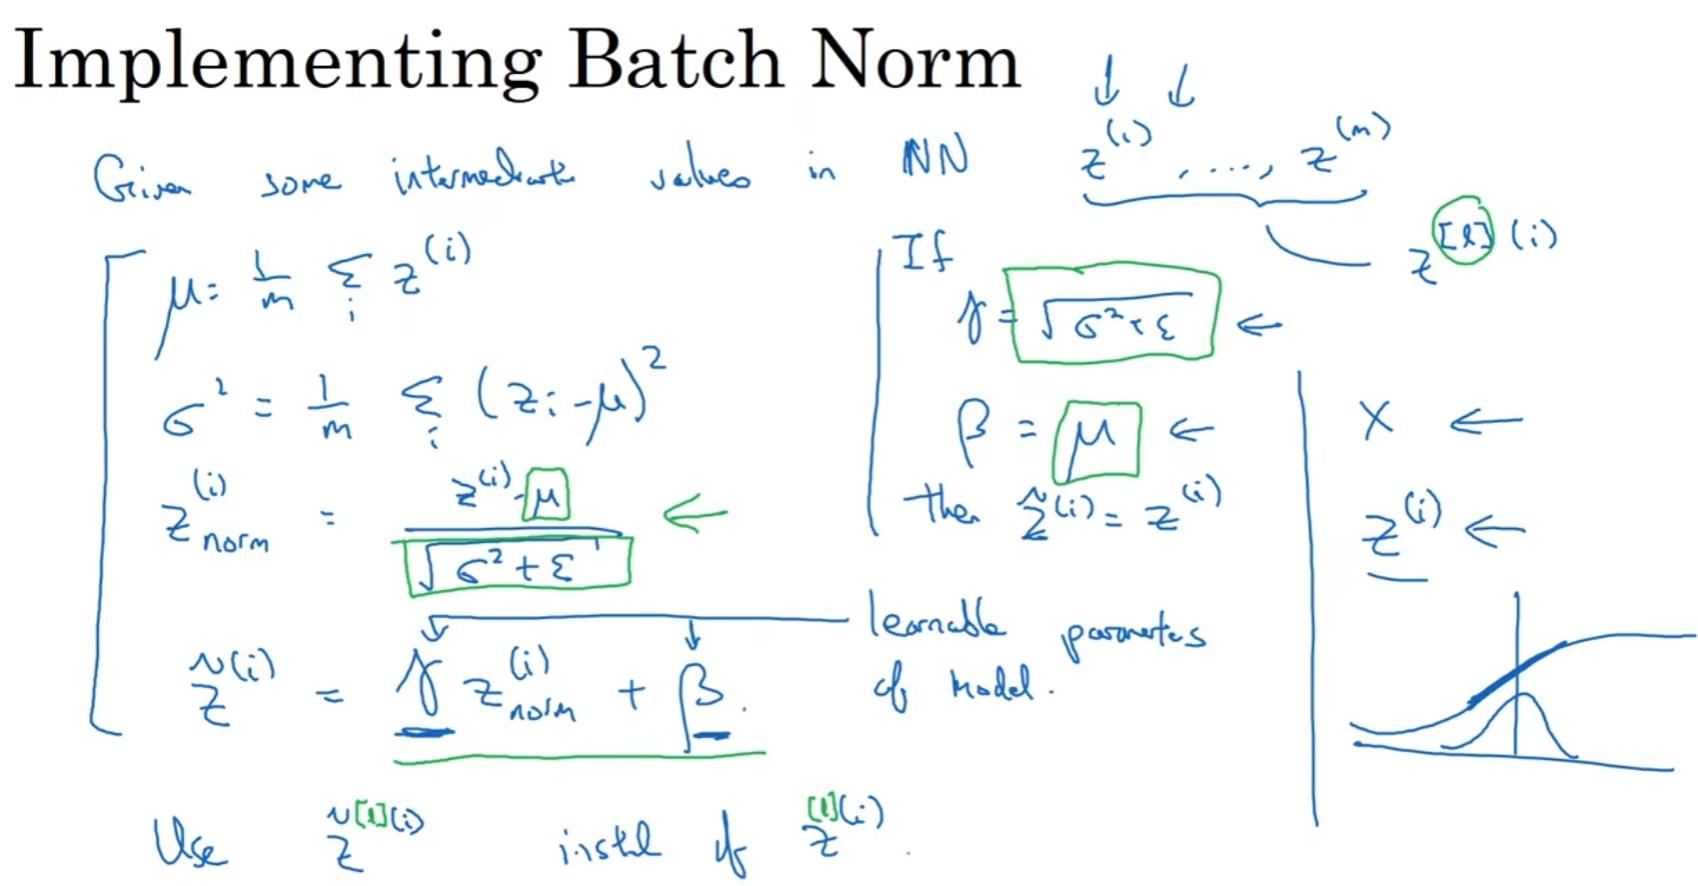 Implementing Batch Norm
Given some intermediate values in NN z^(i), ...., z^(m)
z^[l](i)
μ = 1/m Σ_i z^(i)
σ² = 1/m Σ_i (z_i - μ)²
z_norm^(i) = (z^(i) - μ) / √(σ² + ε)
z̃^(i) = γ z_norm^(i) + β
learnable parameters
of model.
If
γ = √(σ² + ε)
β = μ
then z̃^(i) = z^(i)
X
z^(i)
Use z̃^[l](i) instead of z^[l](i).